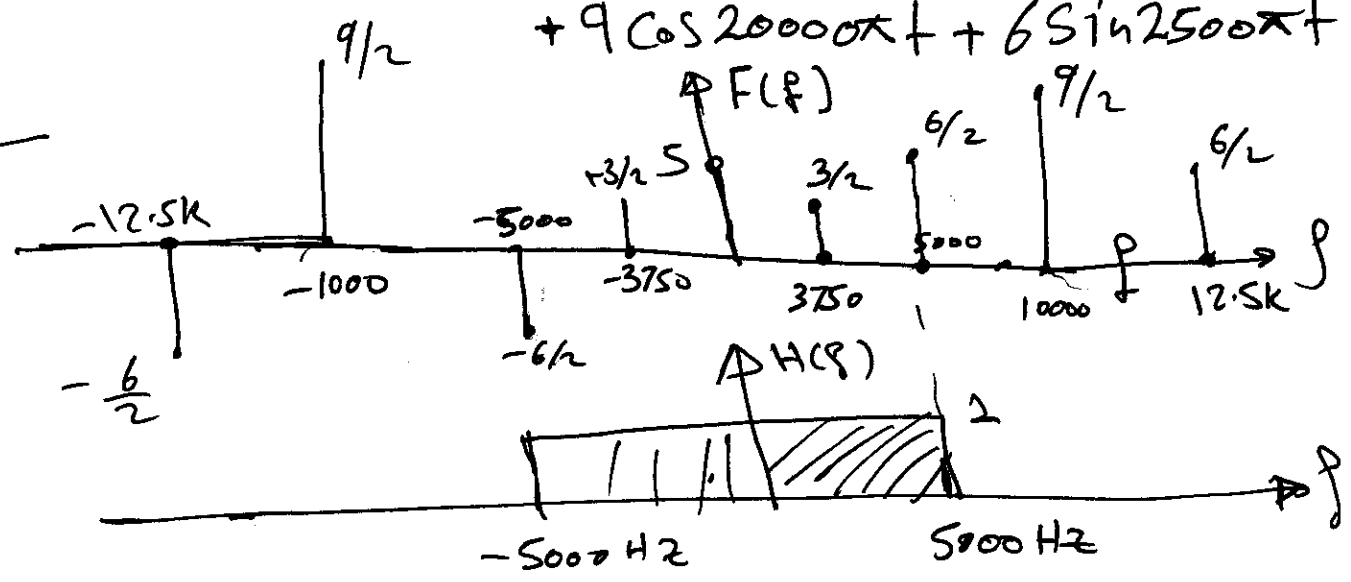 + 9 Cos 20000πt + 6 Sin 2500πt
9/2
F(f)
9/2
6/2
6/2
+3/2
5
3/2
-12.5K
-5000
5000
f
-1000
-3750
3750
10000
f
12.5K
-6/2
- 6/2
H(f)
1
f
-5000 HZ
5000 HZ